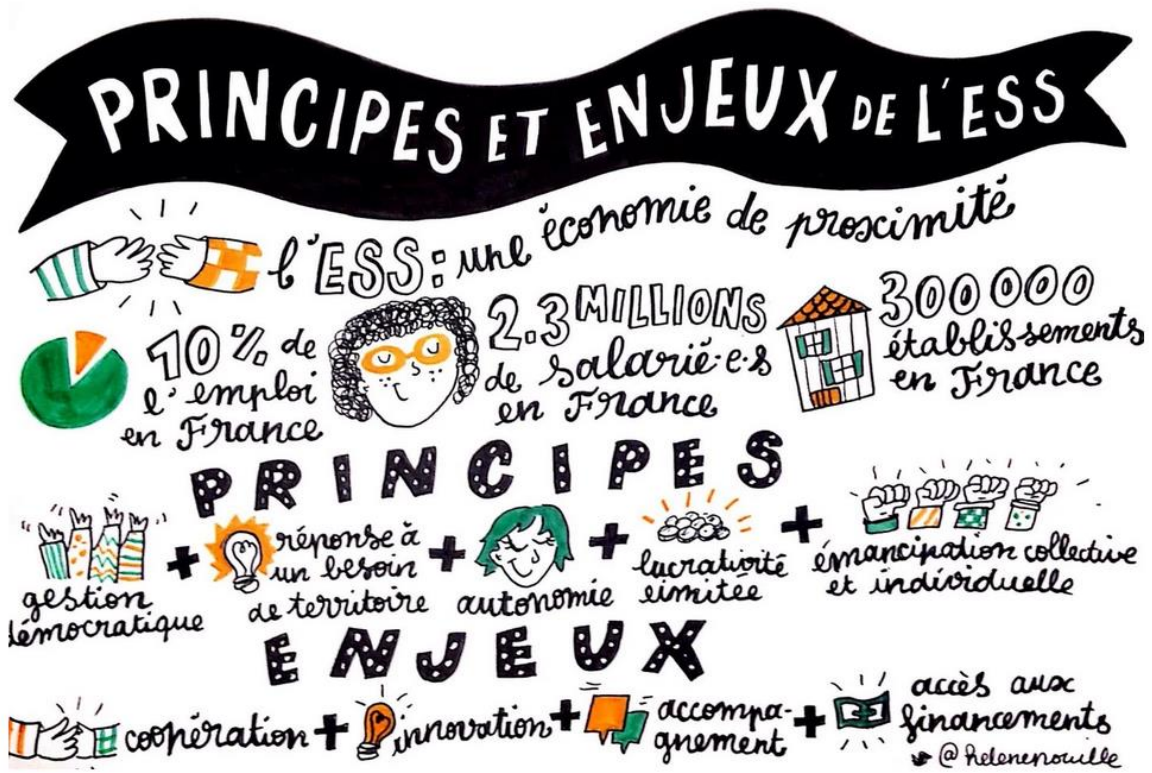 PRINCIPES ET ENJEUX DE L'ESS
l'ESS : une économie de proximité
10% de
l'emploi
en France
2.3 MILLIONS
de salarié·e·s
en France
300 000
établissements
en France
PRINCIPES
gestion
démocratique
+
réponse à
un besoin
de territoire
+
autonomie
+
lucrativité
limitée
+
émancipation collective
et individuelle
ENJEUX
coopération
+
innovation
+
accompa-
gnement
+
accès aux
financements
@helenepouille